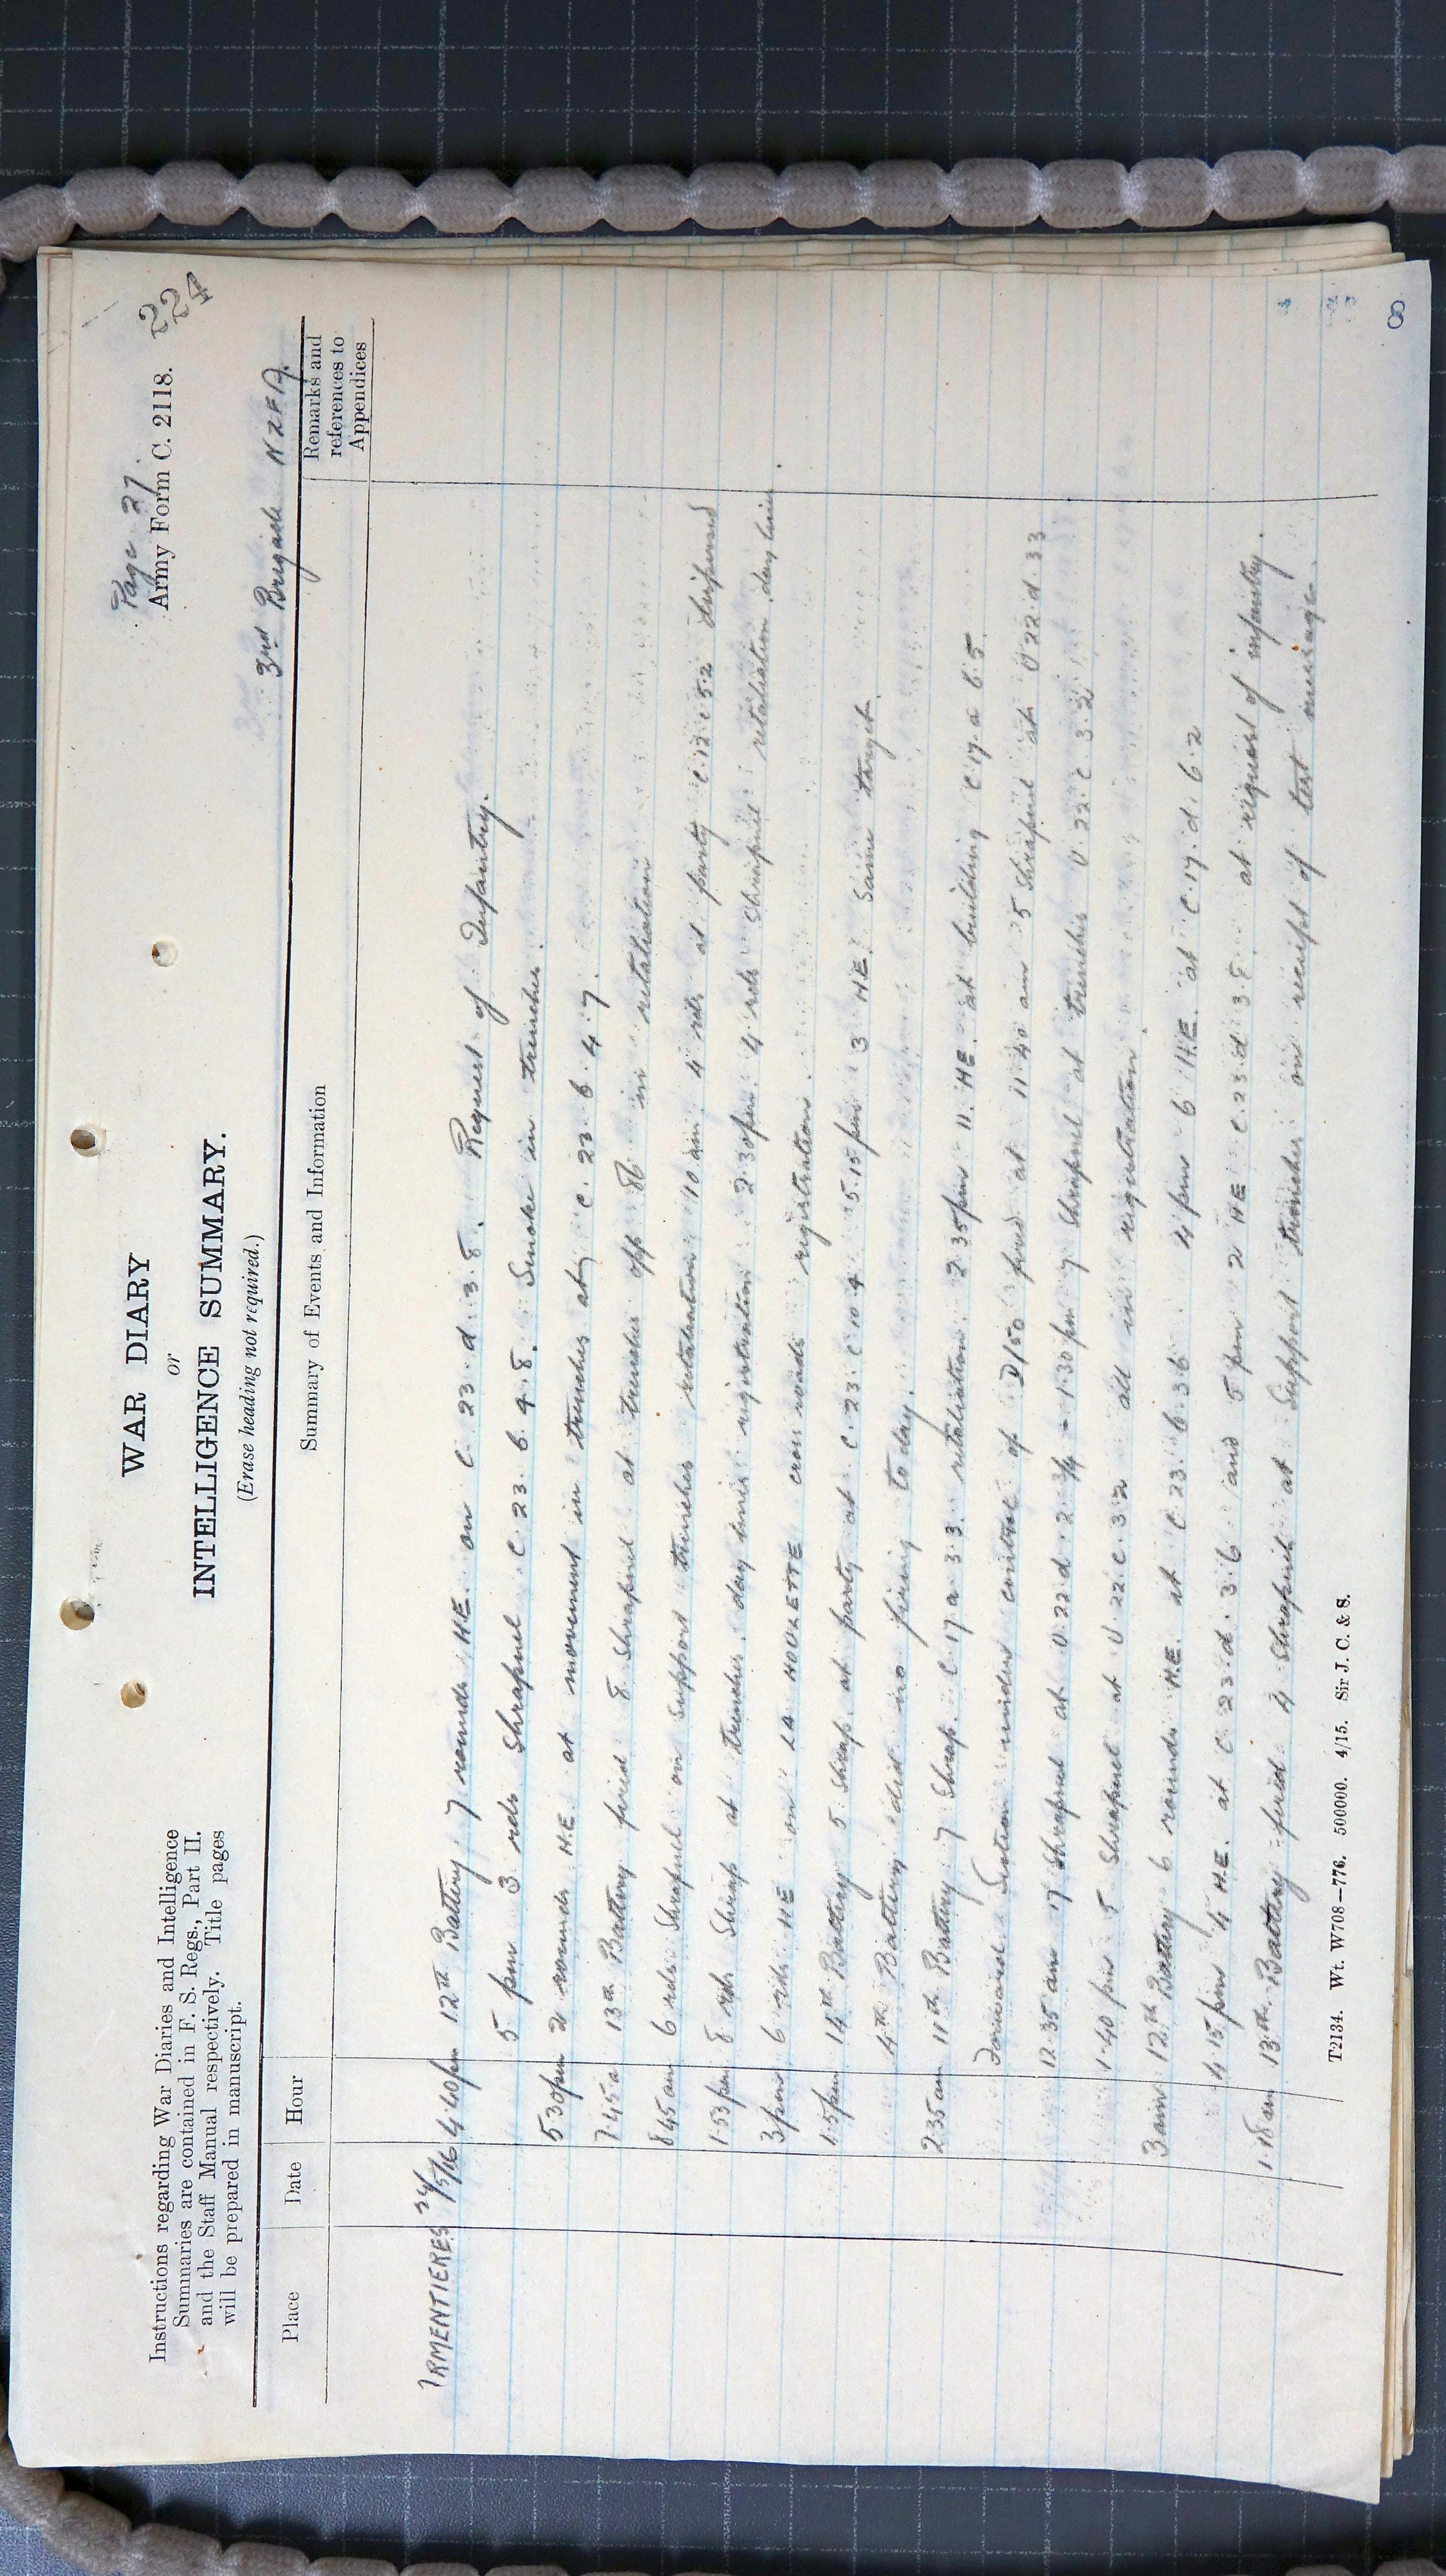 Page 27.
Army Form C. 2118.
224
WAR DIARY
or
INTELLIGENCE SUMMARY.
(Erase heading not required.)
Instructions regarding War Diaries and Intelligence
Summaries are contained in F. S. Regs., Part II.
and the Staff Manual respectively. Title pages
will be prepared in manuscript.
3rd Brigade NZFA.
Place
Date
Hour
Summary of Events and Information
Remarks and
references to
Appendices
ARMENTIERES 24/5/16 4.40pm 12th Battery 7 rounds HE. on C. 23. d. 3.8. Request of Infantry.
5 pm 3 rds Shrapnel C. 23. b. 4.8. Smoke in trenches.
5.30pm 2 rounds H.E. at movement in trenches at C. 23. b. 4.7.
7.45a 13th Battery fired 8 Shrapnel at trenches opp 86 in retaliation
8.45am 6 rds Shrapnel on support trenches retaliation 10 am. 4 rds at party C.12.c.5.2 dispersed
1.53pm 8 rds Shrap at trenches. day lines registration 2.30pm. 4 rds Shrapnel retaliation day lines.
3pm 6 rds HE on LA HOULETTE cross roads registration.
1.5pm 14th Battery 5 Shrap. at party at C.23.c.10.4 5.15pm 3 H.E. Same target.
4th Battery did no firing today.
2.35am 11th Battery 7 Shrap. C.17.a.3.3. retaliation. 2.35pm 11. HE. at building C.17.a 8.5.
Forward Section under control of D/150 fired at 11.40 am 5 Shrapnel at U22.d.33
12.35 am 17 Shrapnel at U.22.d.2.3/4 - 1.30pm 7 Shrapnel at trenches U.22.c 3.2
1.40 pm 5 Shrapnel at U.22.c.3.2 all in registration.
3am 12th Battery 6 rounds H.E. at C.23.b.3.6 4 pm 6 H.E. at C.17.d.6.2
4.15 pm 4 H.E. at C.23.d.3.6 and 5 pm 2 HE C.23.d.3.8 at request of infantry.
1.18am 13th Battery fired 4 Shrapnel at Support trenches on receipt of test message.
T2134. Wt. W708—776. 500000. 4/15. Sir J. C. & S.
8